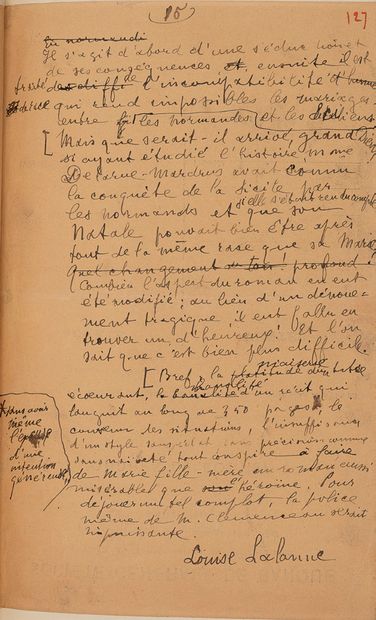 (15)
127
en normandi
Il s'agit d'abord d'une séduction et
de ses conséquences et ensuite il est
traité des diff de l'incompatibilité d'humeur
qui rend impossibles les mariages
entre les normandes et les siciliens
[ Mais que serait-il arrivé, grand
si ayant étudié l'histoire, Mme
Delarue-Mardrus avait connu
la conquête de la Sicile par
les normands et si elle s'était rendu compte que son
Natale pouvait bien être après
tout de la même race que sa Marie
Quel changement profond!
Combien l'aspect du roman en eut
été modifié; au lieu d'un dénoue-
ment tragique, il eut fallu en
trouver un d'heureux. Et l'on
sait que c'est bien plus difficile.
[ Bref, la platitude d'un style
écœurant, la banalité d'un récit qui
languit au long de 350 pages, le
des situations, l'insuffisance
d'un style sans éclat, sans précision comme
sans naïveté tout conspire à faire
sans avoir
même
l'excuse
d'une
intention
généreuse
de Marie fille-mère un roman aussi
misérable que son héroïne. Pour
déjouer un tel complot, la police
même de M. Clemenceau serait
impuissante.
Louise Lalanne